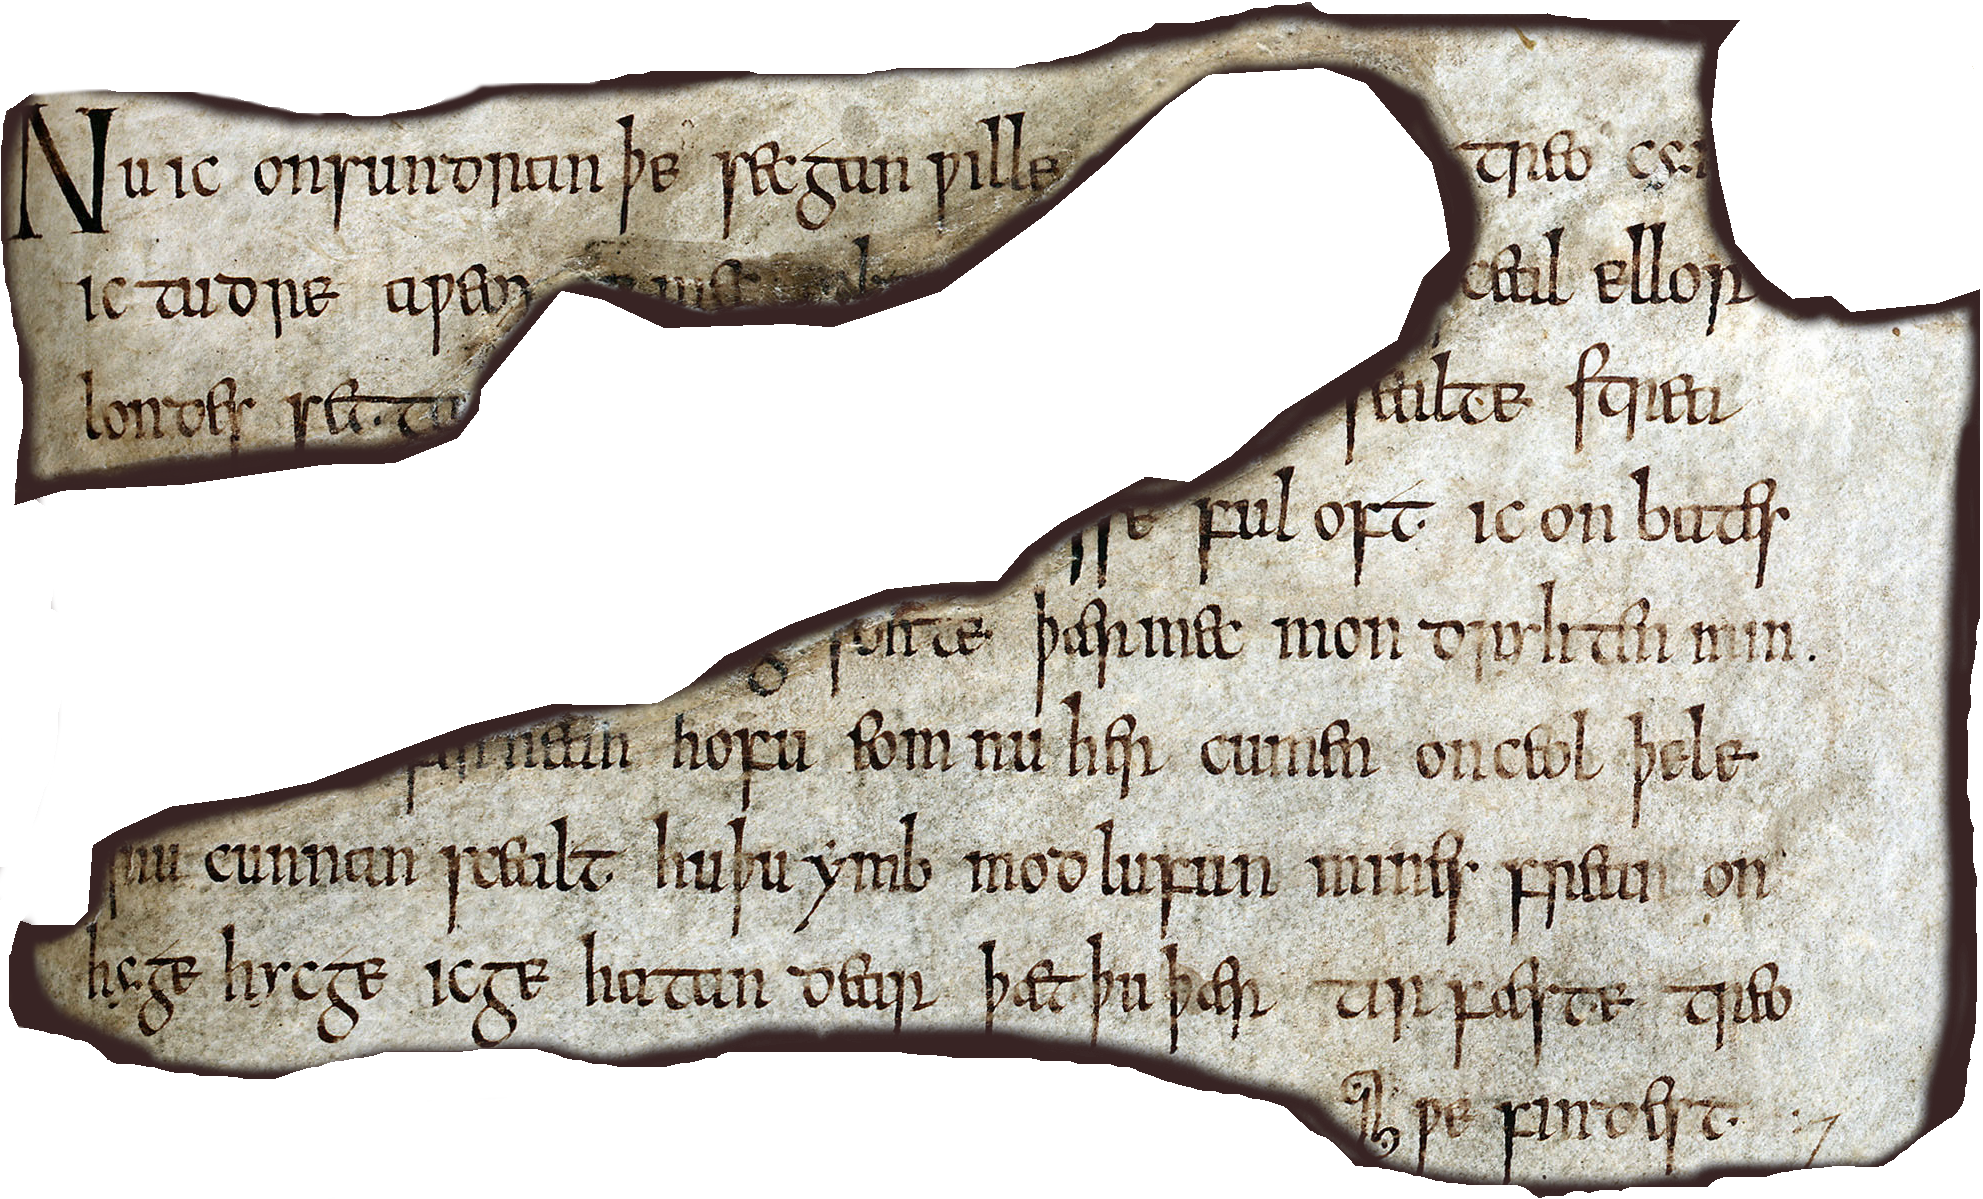 Nu ic onsundran þe secgan ƿille treo cyn
ic tudre aƿeox mec sceal ellor
londes set tu sealte strea
sse ful oft ic on bates
gesohte þær mec mon dryhten min.
ofer heah hofu eom nu her cumen on ceol þele
nu cunnan scealt hu þu ymb modlufun mines frean on
hyge hycge ic ge hatan dear þæt þu þær tir fæste treo
ƿe findest :7